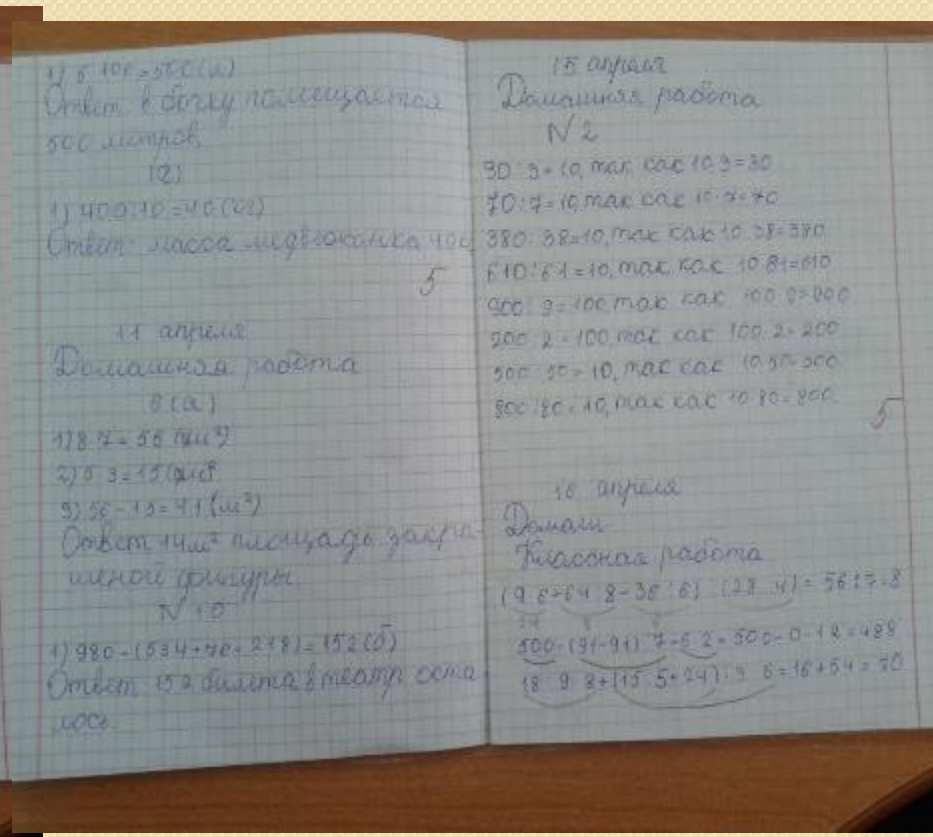 1) 5·100=500(л)
Ответ: в бочку помещается
500 литров
(2)
1) 400:10=40(кг)
Ответ: масса медвежонка 40к
5
11 апреля
Домашняя работа
8(а)
1) 8·7=56 (м²)
2) 5·3=15
3) 56-15=41(м²)
Ответ: м² площадь закра-
шеной фигуры.
N 10
1) 980-(534+76+218)=152(б)
Ответ: 152 билета в театр оста
лось.
15 апреля
Домашняя работа
N 2
30:3=10, так как 10·3=30
70:7=10, так как 10·7=70
380:38=10, так как 10·38=380
610:61=10, так как 10·61=610
900:9=100, так как 100·9=900
200:2=100, так как 100·2=200
500:50=10, так как 10·50=500
800:80=10, так как 10·80=800
5
16 апреля
Домаш
Классная работа
(9·6+64:8-36:6):(28:4)=56:7=8
500-(91-91):7-6·2=500-0-12=488
18:9·8+(15·5+24):
=16+54=70